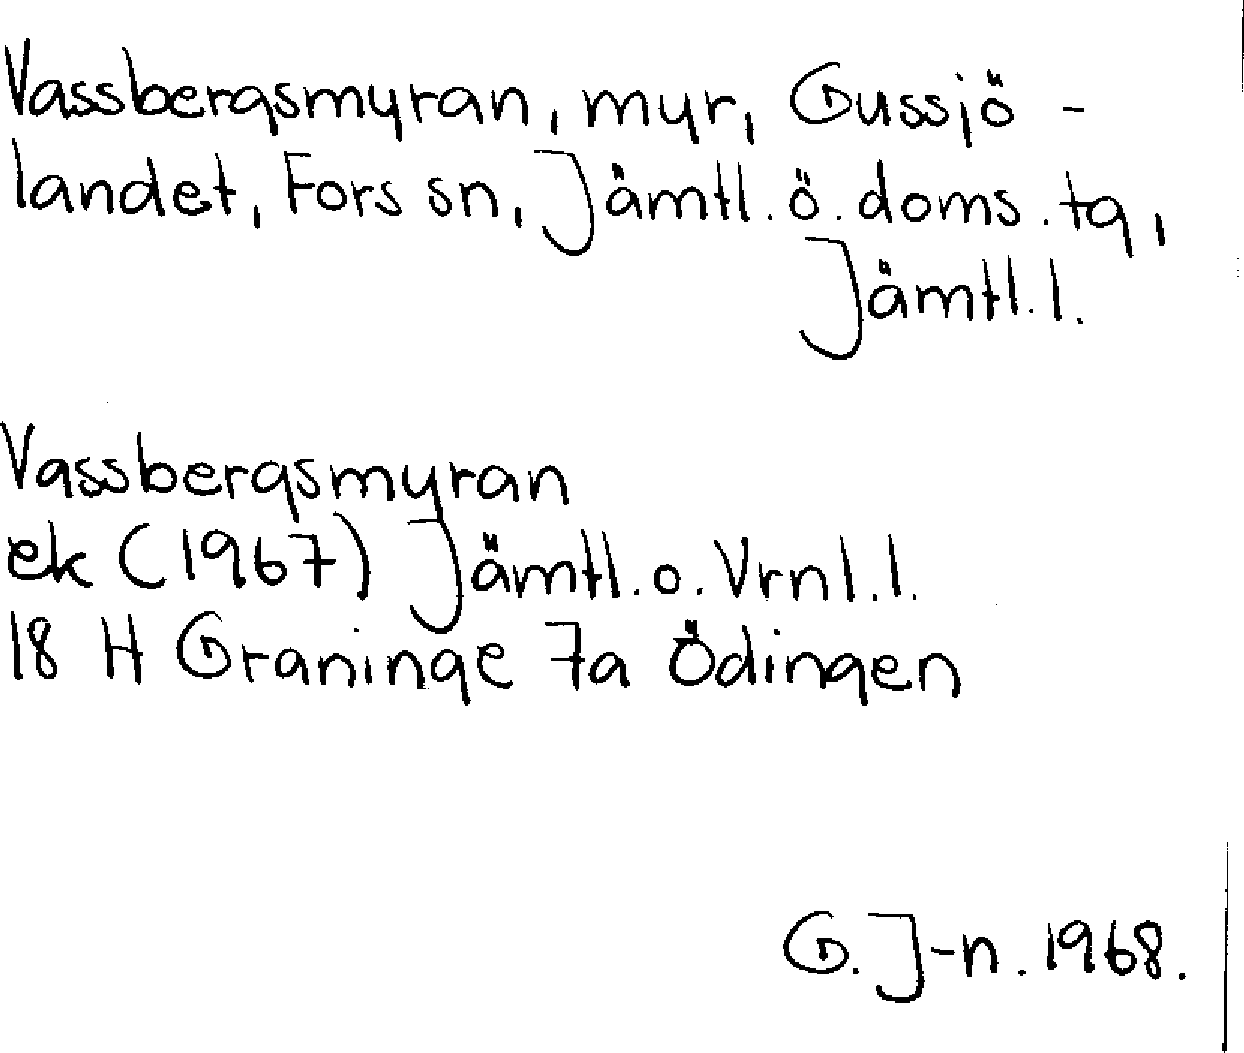 Vassbergsmyran, myr, Gussjö-
landet, Fors sn, Jämtl. ö. doms. tg,
Jämtl. l.
Vassbergsmyran
ek (1967) Jämtl. o. Vrnl. l.
18 H Graninge 7a Ödingen
G. J-n. 1968.